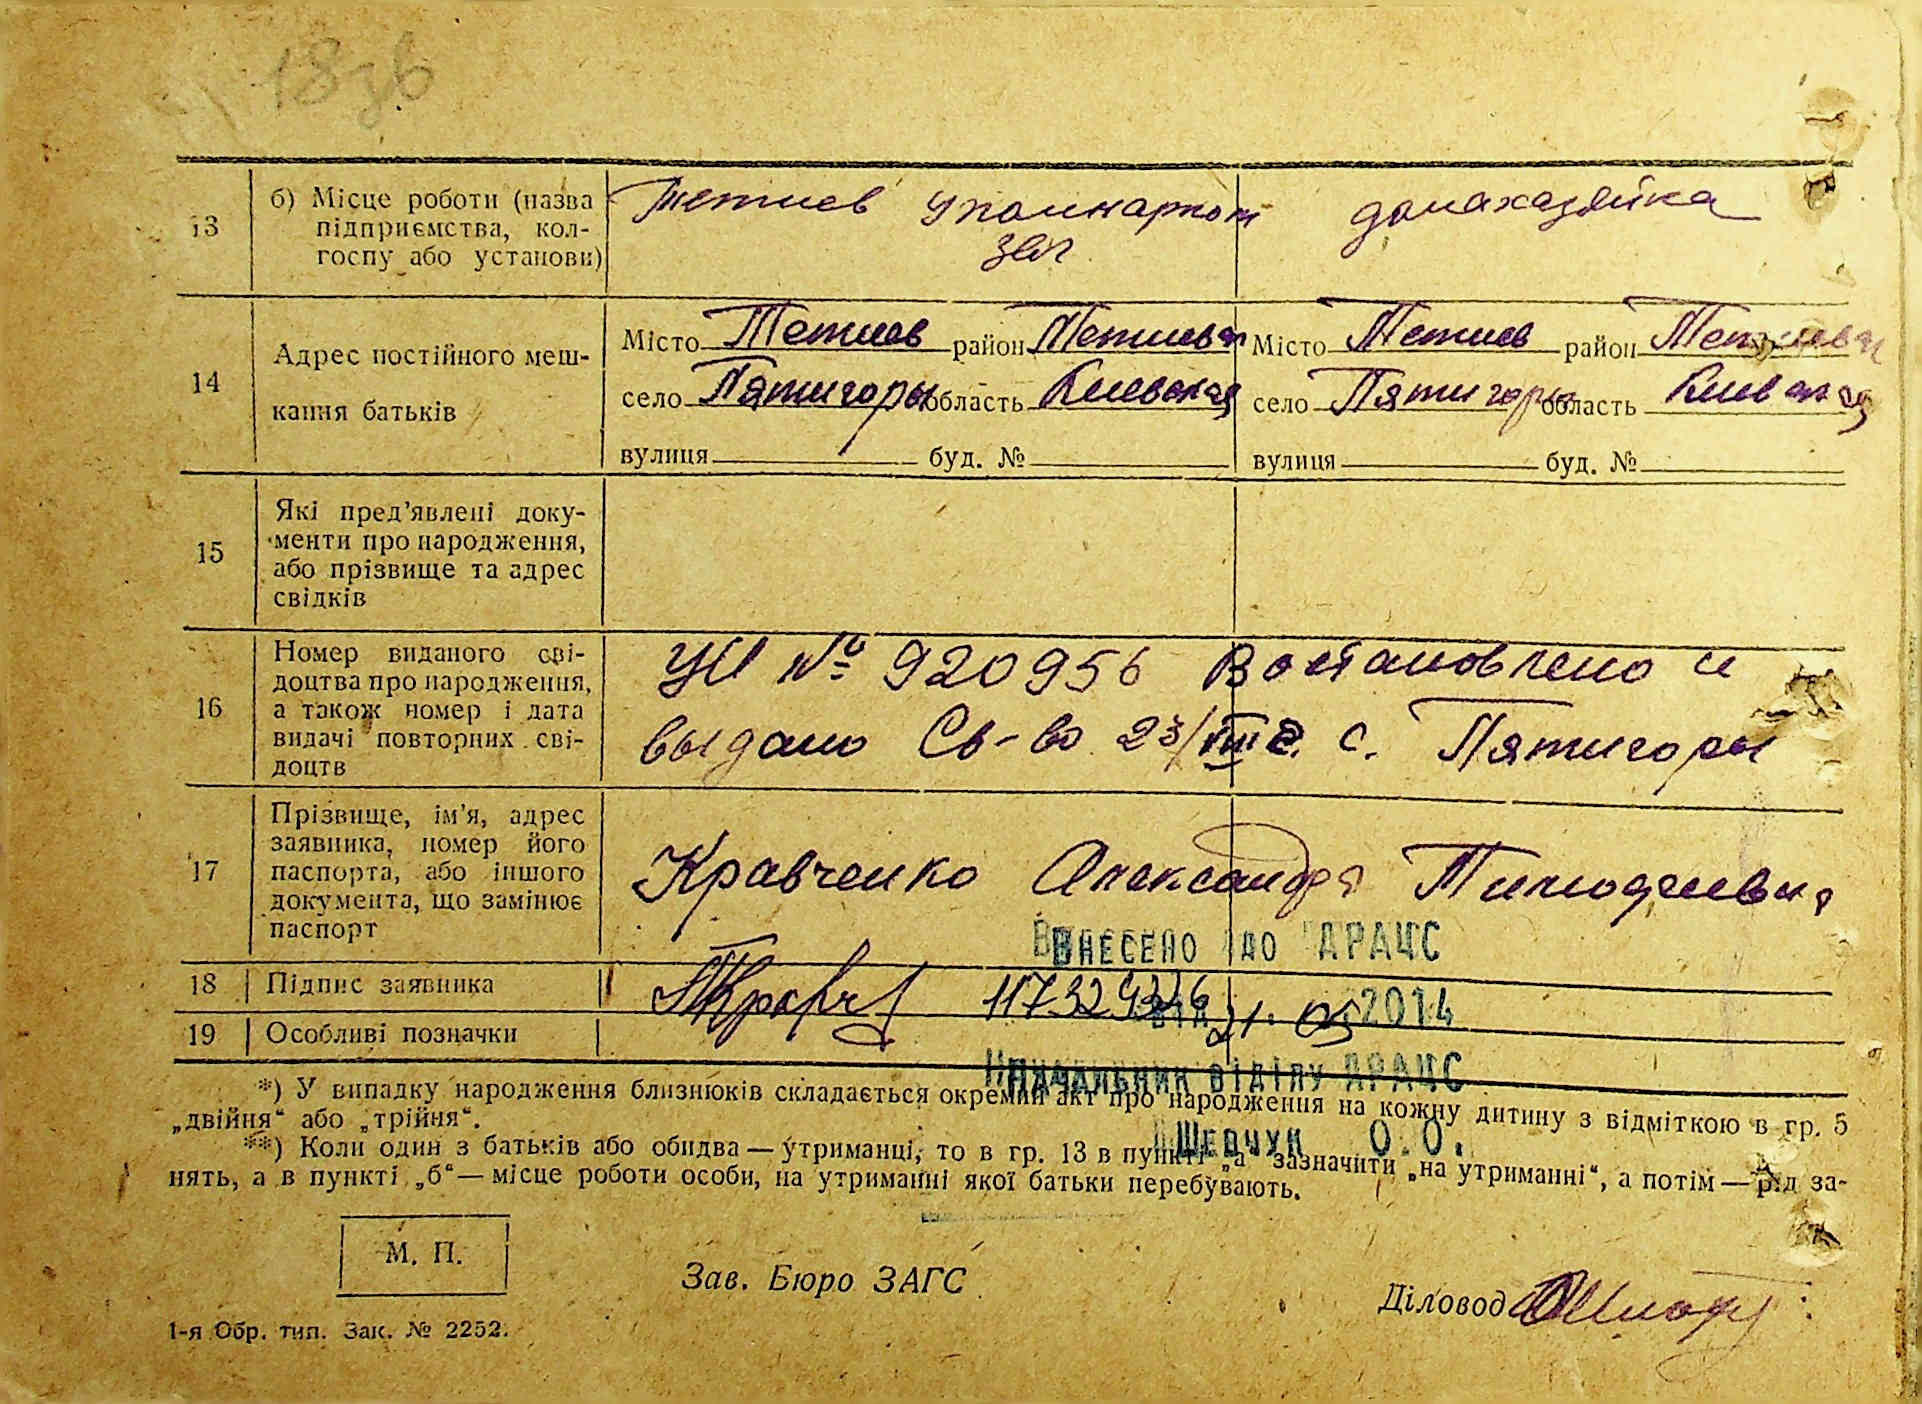 18зв
13
б) Місце роботи (назва
підприємства, кол-
госпу або установи)
Тетиев Упоминаркот
заг
домахазяйка
14
Адрес постійного меш-
кання батьків
Місто Тетиев район Тетиевск
село Пятигоры область Киевская
вулиця буд. №
Місто Тетиев район Тетиевск
село Пятигоры область Киевская
вулиця буд. №
15
Які пред'явлені доку-
менти про народження,
або прізвище та адрес
свідків
16
Номер виданого сві-
доцтва про народження,
а також номер і дата
видачі повторних сві-
доцтв
УИ № 920956 Востановлено и
выдано Св-во 23/VIII г. с. Пятигоры
17
Прізвище, ім'я, адрес
заявника, номер його
паспорта, або іншого
документа, що замінює
паспорт
Кравченко Александра Тимофеевна
ВНЕСЕНО ДО ДРАЦС
18
Підпис заявника
117324326
від 21. 05 2014
19
Особливі позначки
НАЧАЛЬНИК ВІДІЛУ ДРАЦС
*) У випадку народження близнюків складається окремий акт про народження на кожну дитину з відміткою в гр. 5
„двійня“ або „трійня“.
ШЕВЧУК О.О.
**) Коли один з батьків або обидва — утриманці, то в гр. 13 в пункті „а“ зазначити „на утриманні“, а потім — рід за-
нять, а в пункті „б“ — місце роботи особи, на утриманні якої батьки перебувають.
М. П.
Зав. Бюро ЗАГС
Діловод
1-я Обр. тип. Зак. № 2252.